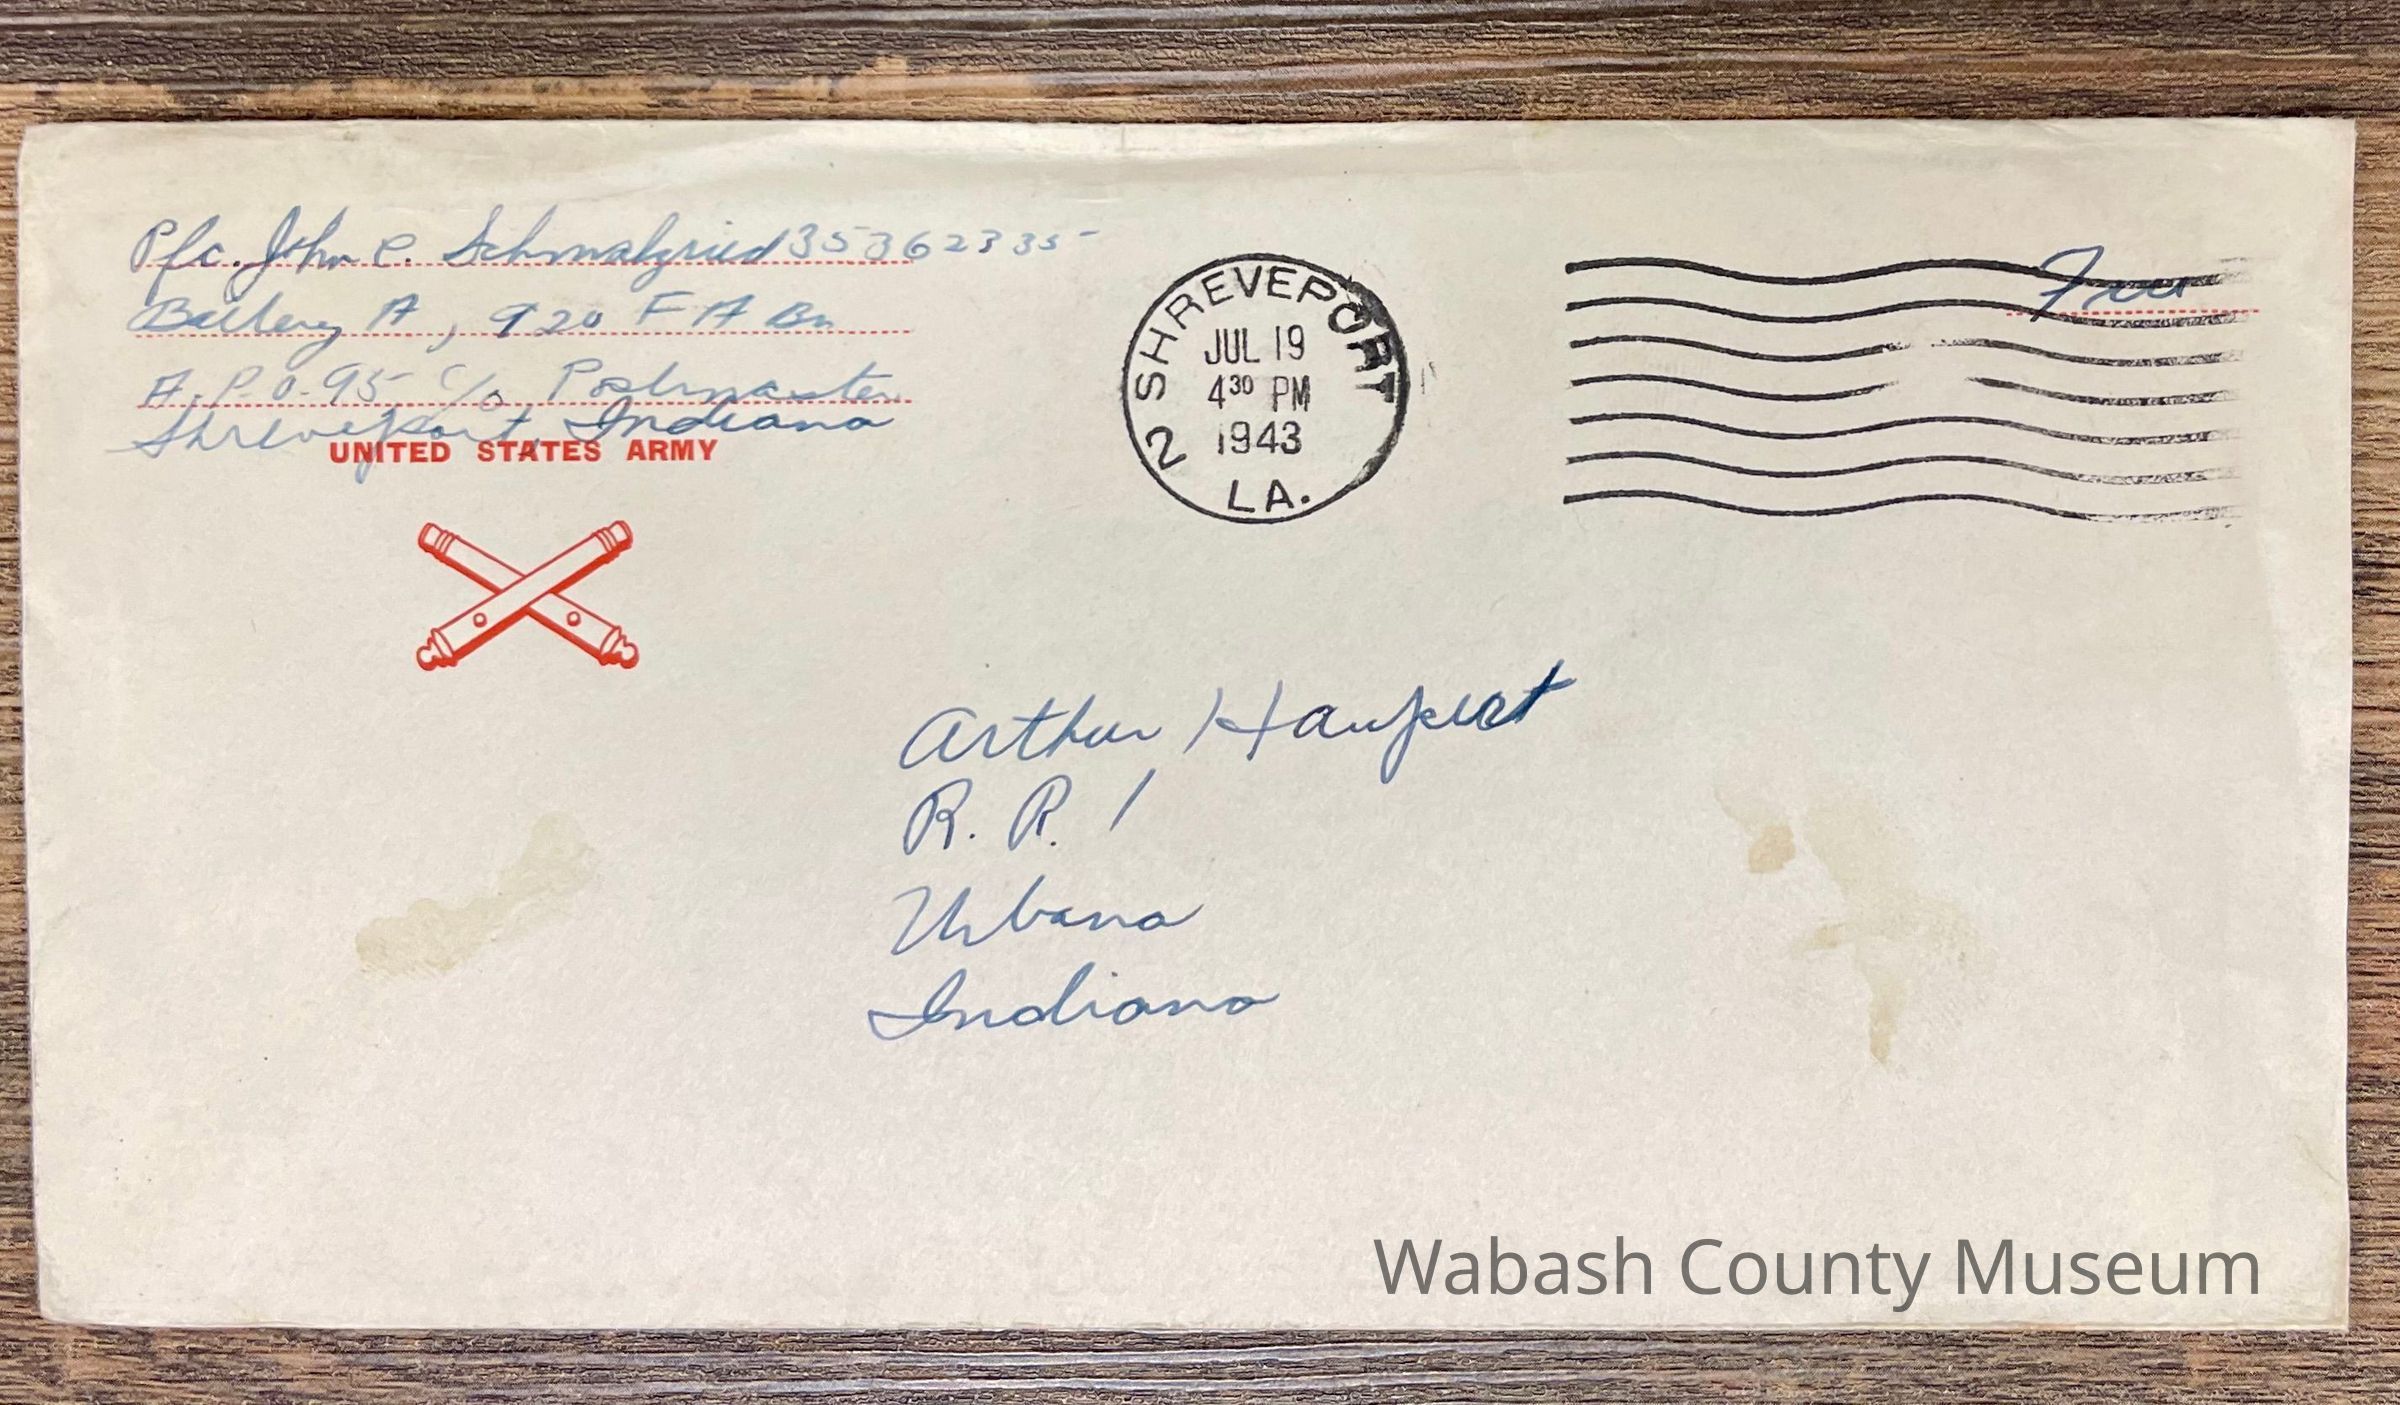 Pfc. John C. Schmalzried 35362335
Battery A, 920 F A Bn
A.P.O. 95 c/o Postmaster
Shreveport, Indiana
UNITED STATES ARMY
2 SHREVEPORT LA.
JUL 19
4 30 PM
1943
Free
Arthur Haupert
R. R. 1
Urbana
Indiana
Wabash County Museum